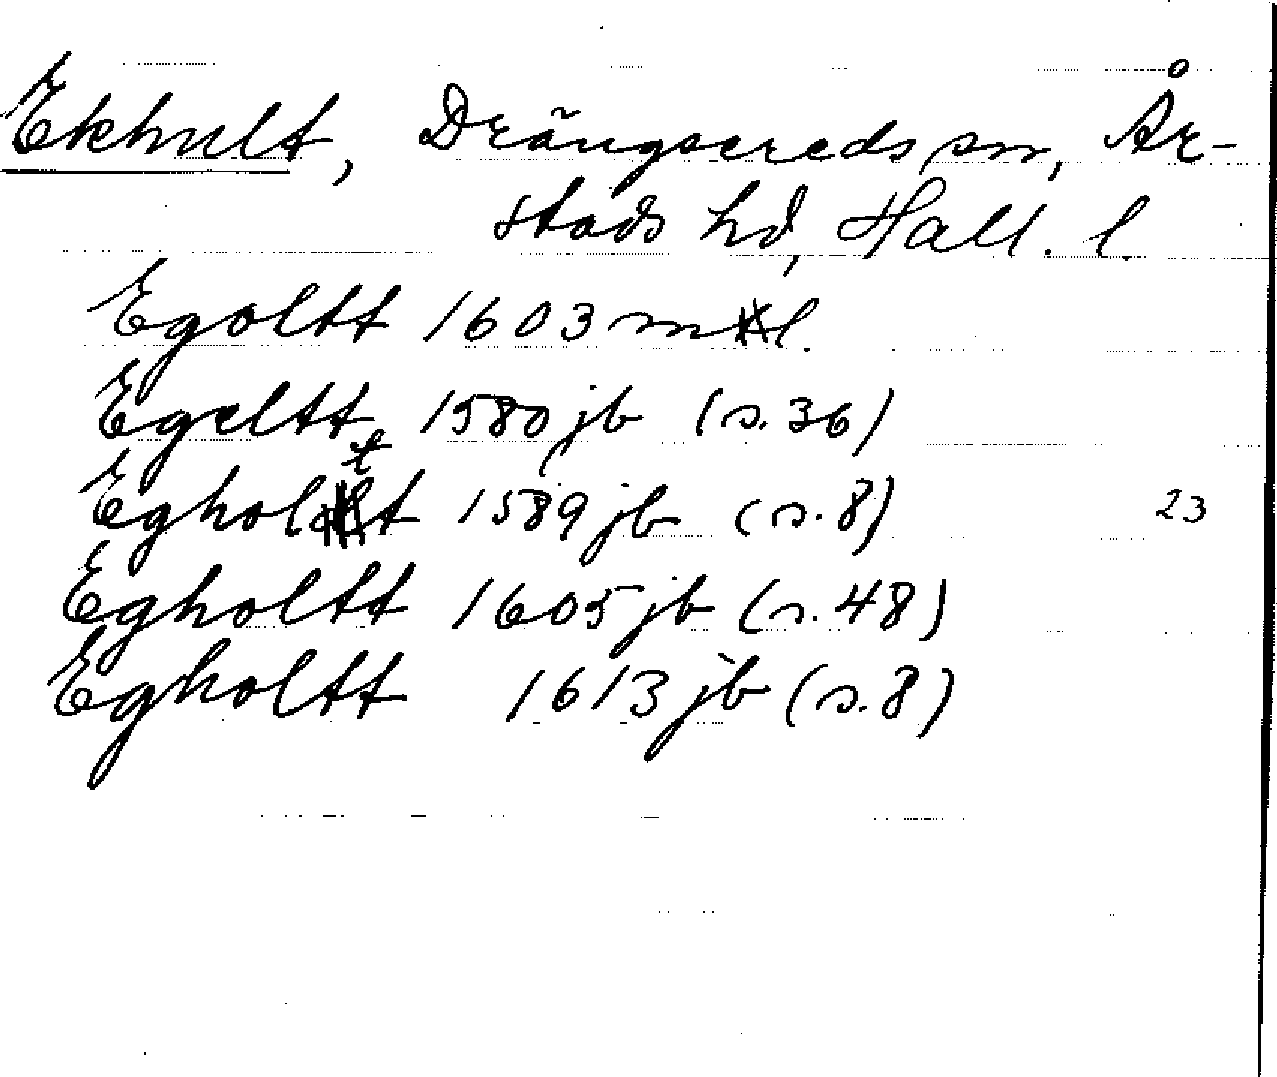 Ekhult, Drängsereds sn, År-
stads hd, Hall. l.
Egoltt 1603 ml.
Egeltt 1580 jb (s. 36)
Egholtt 1589 jb (s. 8) 23
Egholtt 1605 jb (s. 48)
Egholtt 1613 jb (s. 8)